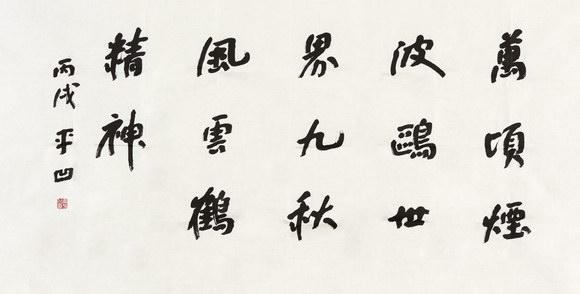 萬頃煙
波鷗世
界九秋
風雲鶴
精神
丙戌平凹